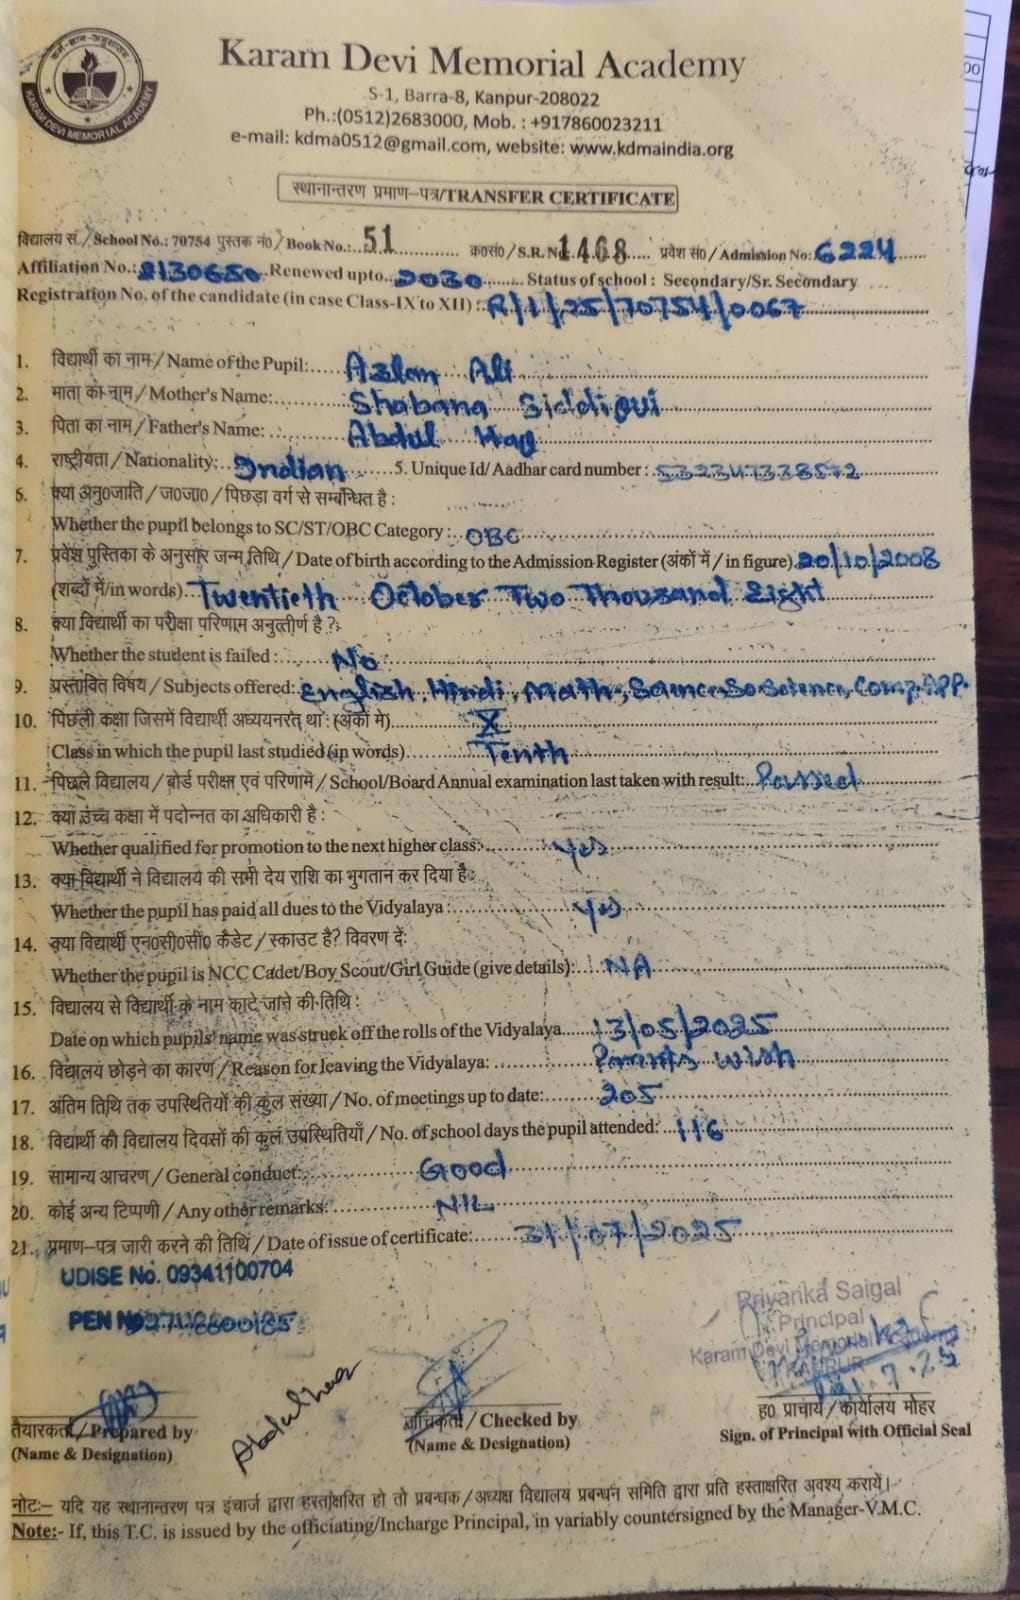 कर्म-ज्ञान-अनुशासन
KARAM DEVI MEMORIAL ACADEMY
Karam Devi Memorial Academy
S-1, Barra-8, Kanpur-208022
Ph.:(0512)2683000, Mob. : +917860023211
e-mail: kdma0512@gmail.com, website: www.kdmaindia.org
स्थानान्तरण प्रमाण-पत्र/TRANSFER CERTIFICATE
विद्यालय सं./School No.: 70754 पुस्तक नं0/Book No.: 51 क्र0सं0/S.R. No 1468 प्रवेश सं0/Admission No: 6224
Affiliation No.: 2130650 Renewed upto 2030 Status of school : Secondary/Sr. Secondary
Registration No. of the candidate (in case Class-IX to XII) : R/1/25/70754/0067
1. विद्यार्थी का नाम/Name of the Pupil: Azlan Ali
2. माता का नाम/Mother's Name: Shabana Siddiqui
3. पिता का नाम/Father's Name: Abdul Haq
4. राष्ट्रीयता/Nationality: Indian 5. Unique Id/Aadhar card number : 532347338572
6. क्या अनु0जाति/ज0जा0/पिछड़ा वर्ग से सम्बन्धित है :
Whether the pupil belongs to SC/ST/OBC Category : OBC
7. प्रवेश पुस्तिका के अनुसार जन्म तिथि/Date of birth according to the Admission Register (अंकों में/in figure) 20/10/2008
(शब्दों में/in words) Twentieth October Two Thousand Eight
8. क्या विद्यार्थी का परीक्षा परिणाम अनुत्तीर्ण है ?:
Whether the student is failed : No
9. प्रस्तावित विषय/Subjects offered: English, Hindi, Math, Science, So. Science, Comp. APP.
10. पिछली कक्षा जिसमें विद्यार्थी अध्ययनरत् था : (अंकों मे) X
Class in which the pupil last studied (in words) Tenth
11. पिछले विद्यालय/बोर्ड परीक्षा एवं परिणाम/School/Board Annual examination last taken with result: Passed
12. क्या उच्च कक्षा में पदोन्नत का अधिकारी है :
Whether qualified for promotion to the next higher class: Yes
13. क्या विद्यार्थी ने विद्यालय की सभी देय राशि का भुगतान कर दिया है :
Whether the pupil has paid all dues to the Vidyalaya : Yes
14. क्या विद्यार्थी एन0सी0सी0 कैडेट/स्काउट है? विवरण दें:
Whether the pupil is NCC Cadet/Boy Scout/Girl Guide (give details): NA
15. विद्यालय से विद्यार्थी के नाम काटे जाने की तिथि :
Date on which pupils' name was struck off the rolls of the Vidyalaya 13/05/2025
16. विद्यालय छोड़ने का कारण/Reason for leaving the Vidyalaya: Parents wish
17. अंतिम तिथि तक उपस्थितियों की कुल संख्या/No. of meetings up to date: 205
18. विद्यार्थी की विद्यालय दिवसों की कुल उपस्थितियाँ/No. of school days the pupil attended: 116
19. सामान्य आचरण/General conduct: Good
20. कोई अन्य टिप्पणी/Any other remarks: NIL
21. प्रमाण-पत्र जारी करने की तिथि/Date of issue of certificate: 31/07/2025
UDISE No. 09341100704
PEN No
Priyanka Saigal
Principal
Karam Devi Memorial Academy
KANPUR
तैयारकर्ता/Prepared by
(Name & Designation)
जाँचकर्ता/Checked by
(Name & Designation)
ह0 प्राचार्य/कार्यालय मोहर
Sign. of Principal with Official Seal
नोटः- यदि यह स्थानान्तरण पत्र इंचार्ज द्वारा हस्ताक्षरित हो तो प्रबन्धक/अध्यक्ष विद्यालय प्रबन्धन समिति द्वारा प्रति हस्ताक्षरित अवश्य करायें।
Note:- If, this T.C. is issued by the officiating/Incharge Principal, in variably countersigned by the Manager-V.M.C.